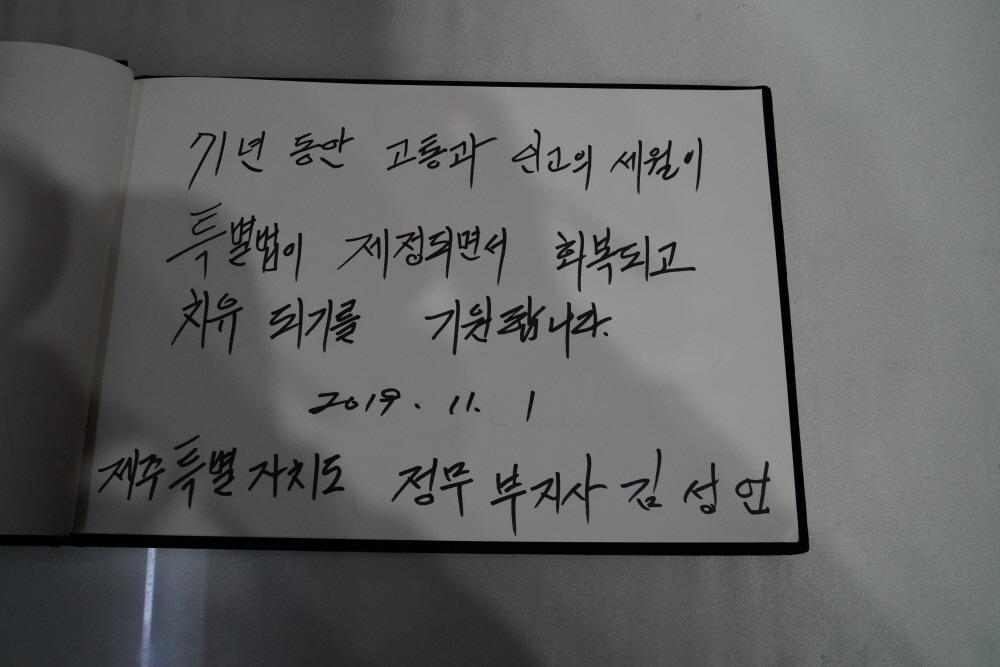 71년 동안 고통과 인고의 세월이
특별법이 제정되면서 회복되고
치유 되기를 기원합니다.
2019. 11. 1
제주특별자치도 정무 부지사 김 성 언